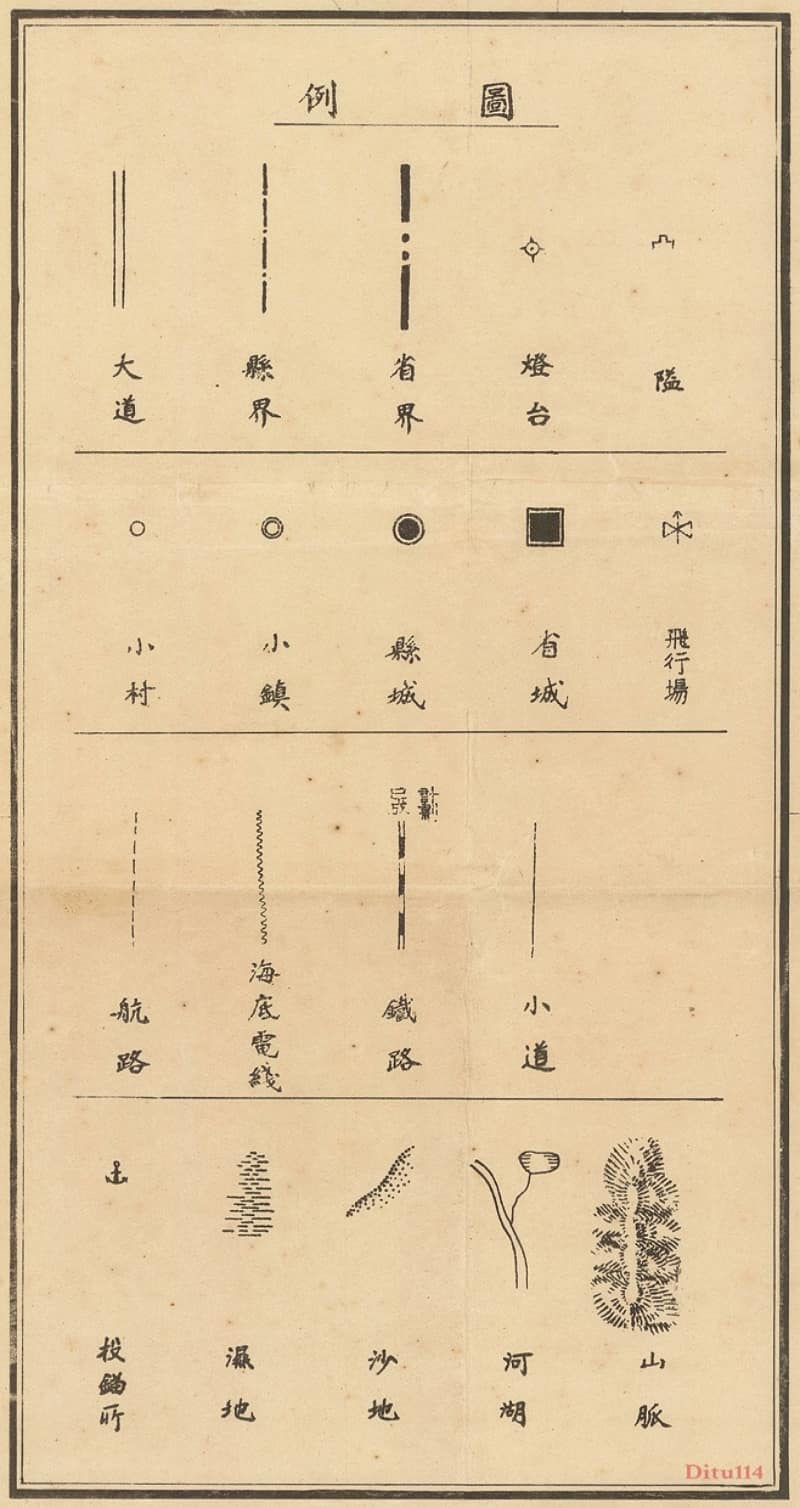 圖例
隘
燈台
省界
縣界
大道
飛行場
省城
縣城
小鎮
小村
小道
計劃
已成
鐵路
海底電綫
航路
山脈
河湖
沙地
濕地
投錨所
Ditu114